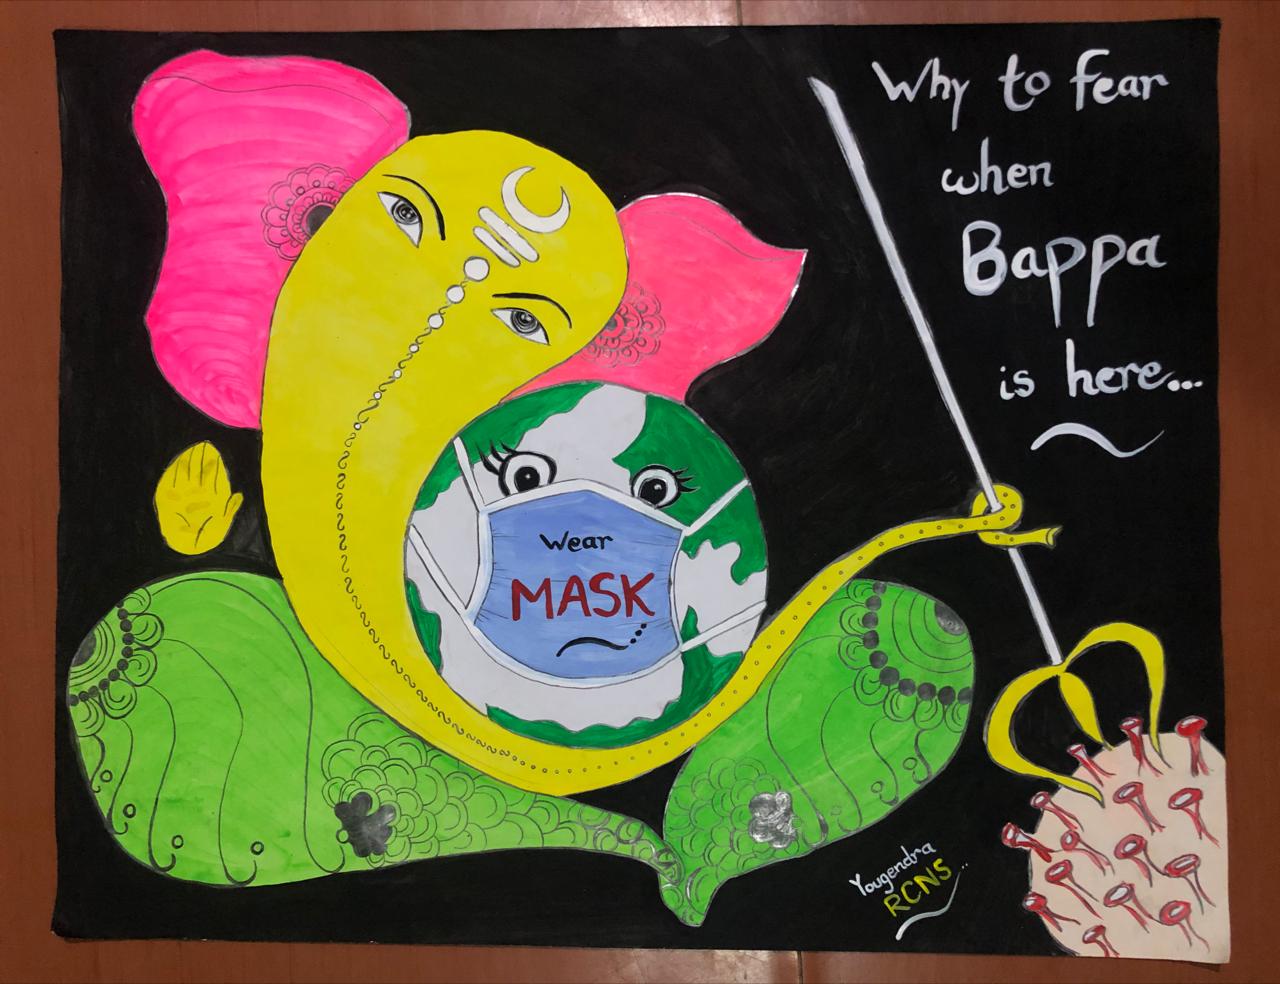 Why to fear
when
Bappa
is here...
Wear
MASK
Yougendra
RCNS